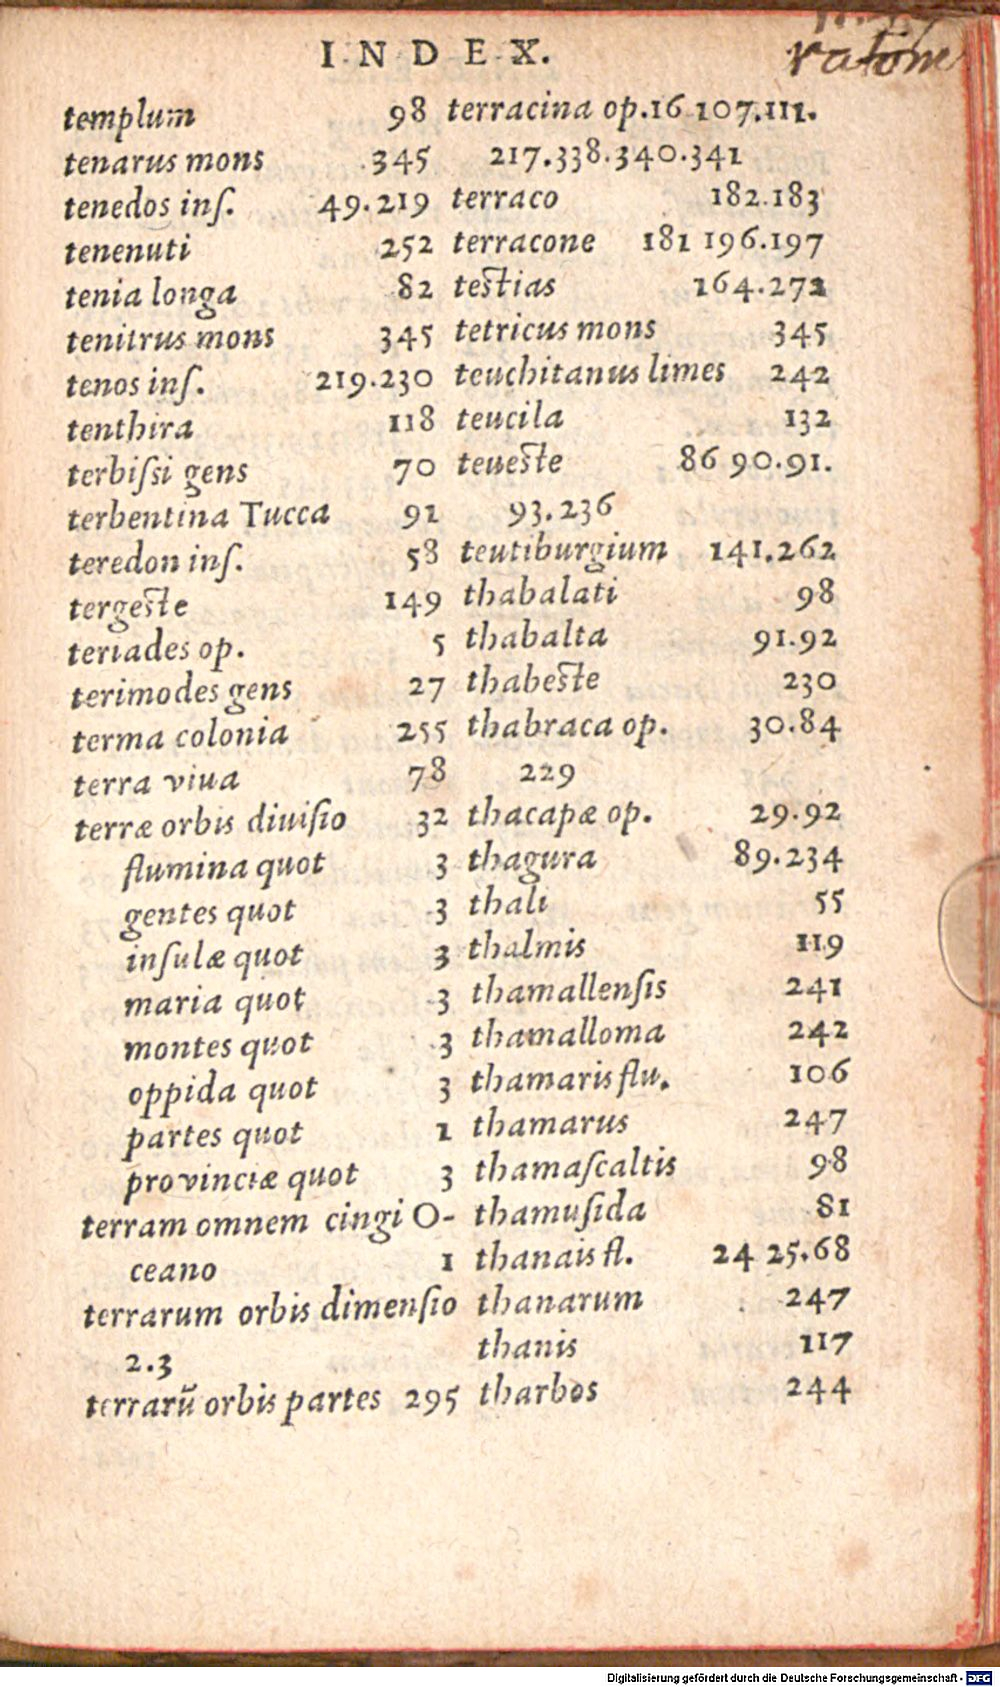 INDEX.
ratione
templum 98
tenarus mons 345
tenedos inſ. 49.219
tenenuti 252
tenia longa 82
tenitrus mons 345
tenos inſ. 219.230
tenthira 118
terbiſsi gens 70
terbentina Tucca 91
teredon inſ. 58
tergeste 149
teriades op. 5
terimodes gens 27
terma colonia 255
terra viua 78
terræ orbis diuiſio 32
flumina quot 3
gentes quot 3
inſulæ quot 3
maria quot 3
montes quot 3
oppida quot 3
partes quot 1
provinciæ quot 3
terram omnem cingi O-
ceano 1
terrarum orbis dimenſio
2.3
terrarũ orbis partes 295
terracina op. 16 107.111.
217.338.340.341
terraco 182.183
terracone 181 196.197
testias 164.272
tetricus mons 345
teuchitanus limes 242
teucila 132
teueste 86 90.91.
93.236
teutiburgium 141.262
thabalati 98
thabalta 91.92
thabeste 230
thabraca op. 30.84
229
thacapæ op. 29.92
thagura 89.234
thali 55
thalmis 119
thamallenſis 241
thamalloma 242
thamaris flu. 106
thamarus 247
thamaſcaltis 98
thamuſida 81
thanais fl. 24 25.68
thanarum 247
thanis 117
tharbos 244
Digitalisierung gefördert durch die Deutsche Forschungsgemeinschaft - DFG